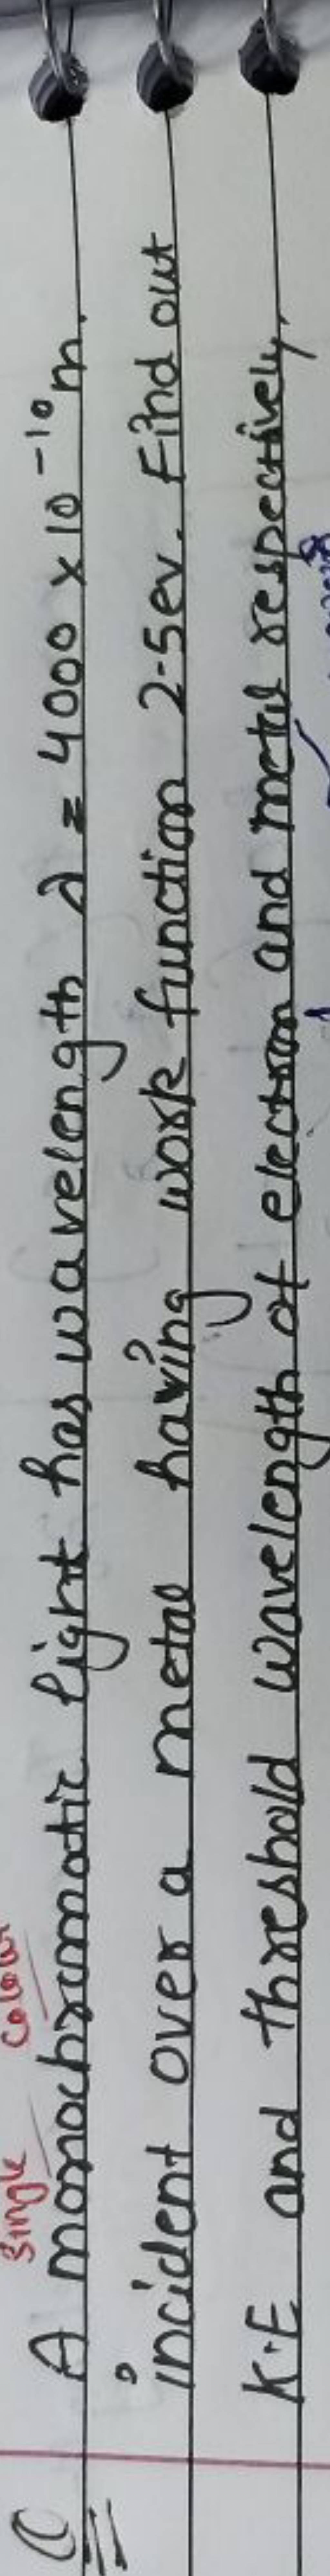 Single colour
Q A monochromatic light has wavelength λ = 4000 × 10⁻¹⁰ m.
incident over a metal having work function 2.5ev. Find out
K.E and threshold wavelength of electron and metal respectively.